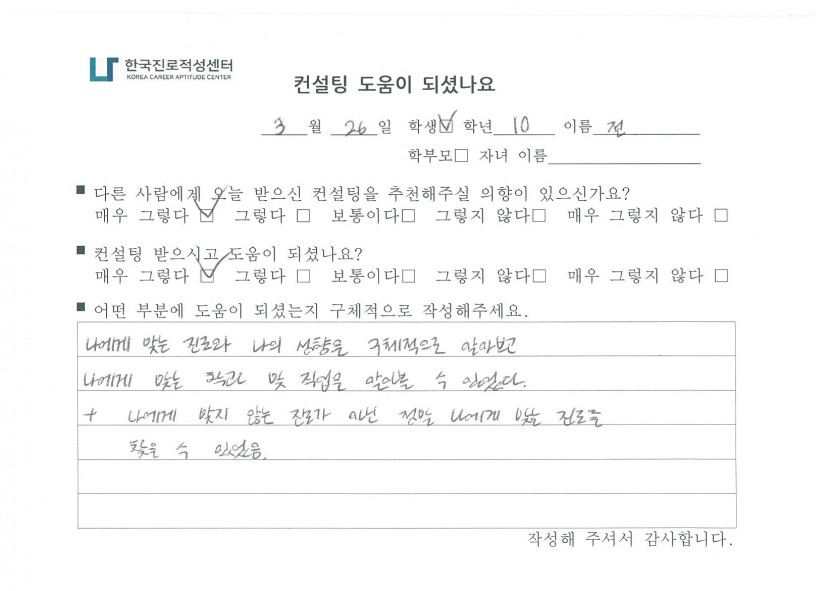 한국진로적성센터
KOREA CAREER APTITUDE CENTER
컨설팅 도움이 되셨나요
3 월 26 일 학생☑ 학년 10 이름 전
학부모□ 자녀 이름
■ 다른 사람에게 오늘 받으신 컨설팅을 추천해주실 의향이 있으신가요?
매우 그렇다 ☑ 그렇다 □ 보통이다□ 그렇지 않다□ 매우 그렇지 않다 □
■ 컨설팅 받으시고 도움이 되셨나요?
매우 그렇다 ☑ 그렇다 □ 보통이다□ 그렇지 않다□ 매우 그렇지 않다 □
■ 어떤 부분에 도움이 되셨는지 구체적으로 작성해주세요.
나에게 맞는 진로와 나의 성향을 구체적으로 알아보고
나에게 맞는 학과 및 직업을 알아볼 수 있었다.
+ 나에게 맞지 않는 진로가 아닌 정말 나에게 맞는 진로를
찾을 수 있었음.
작성해 주셔서 감사합니다.